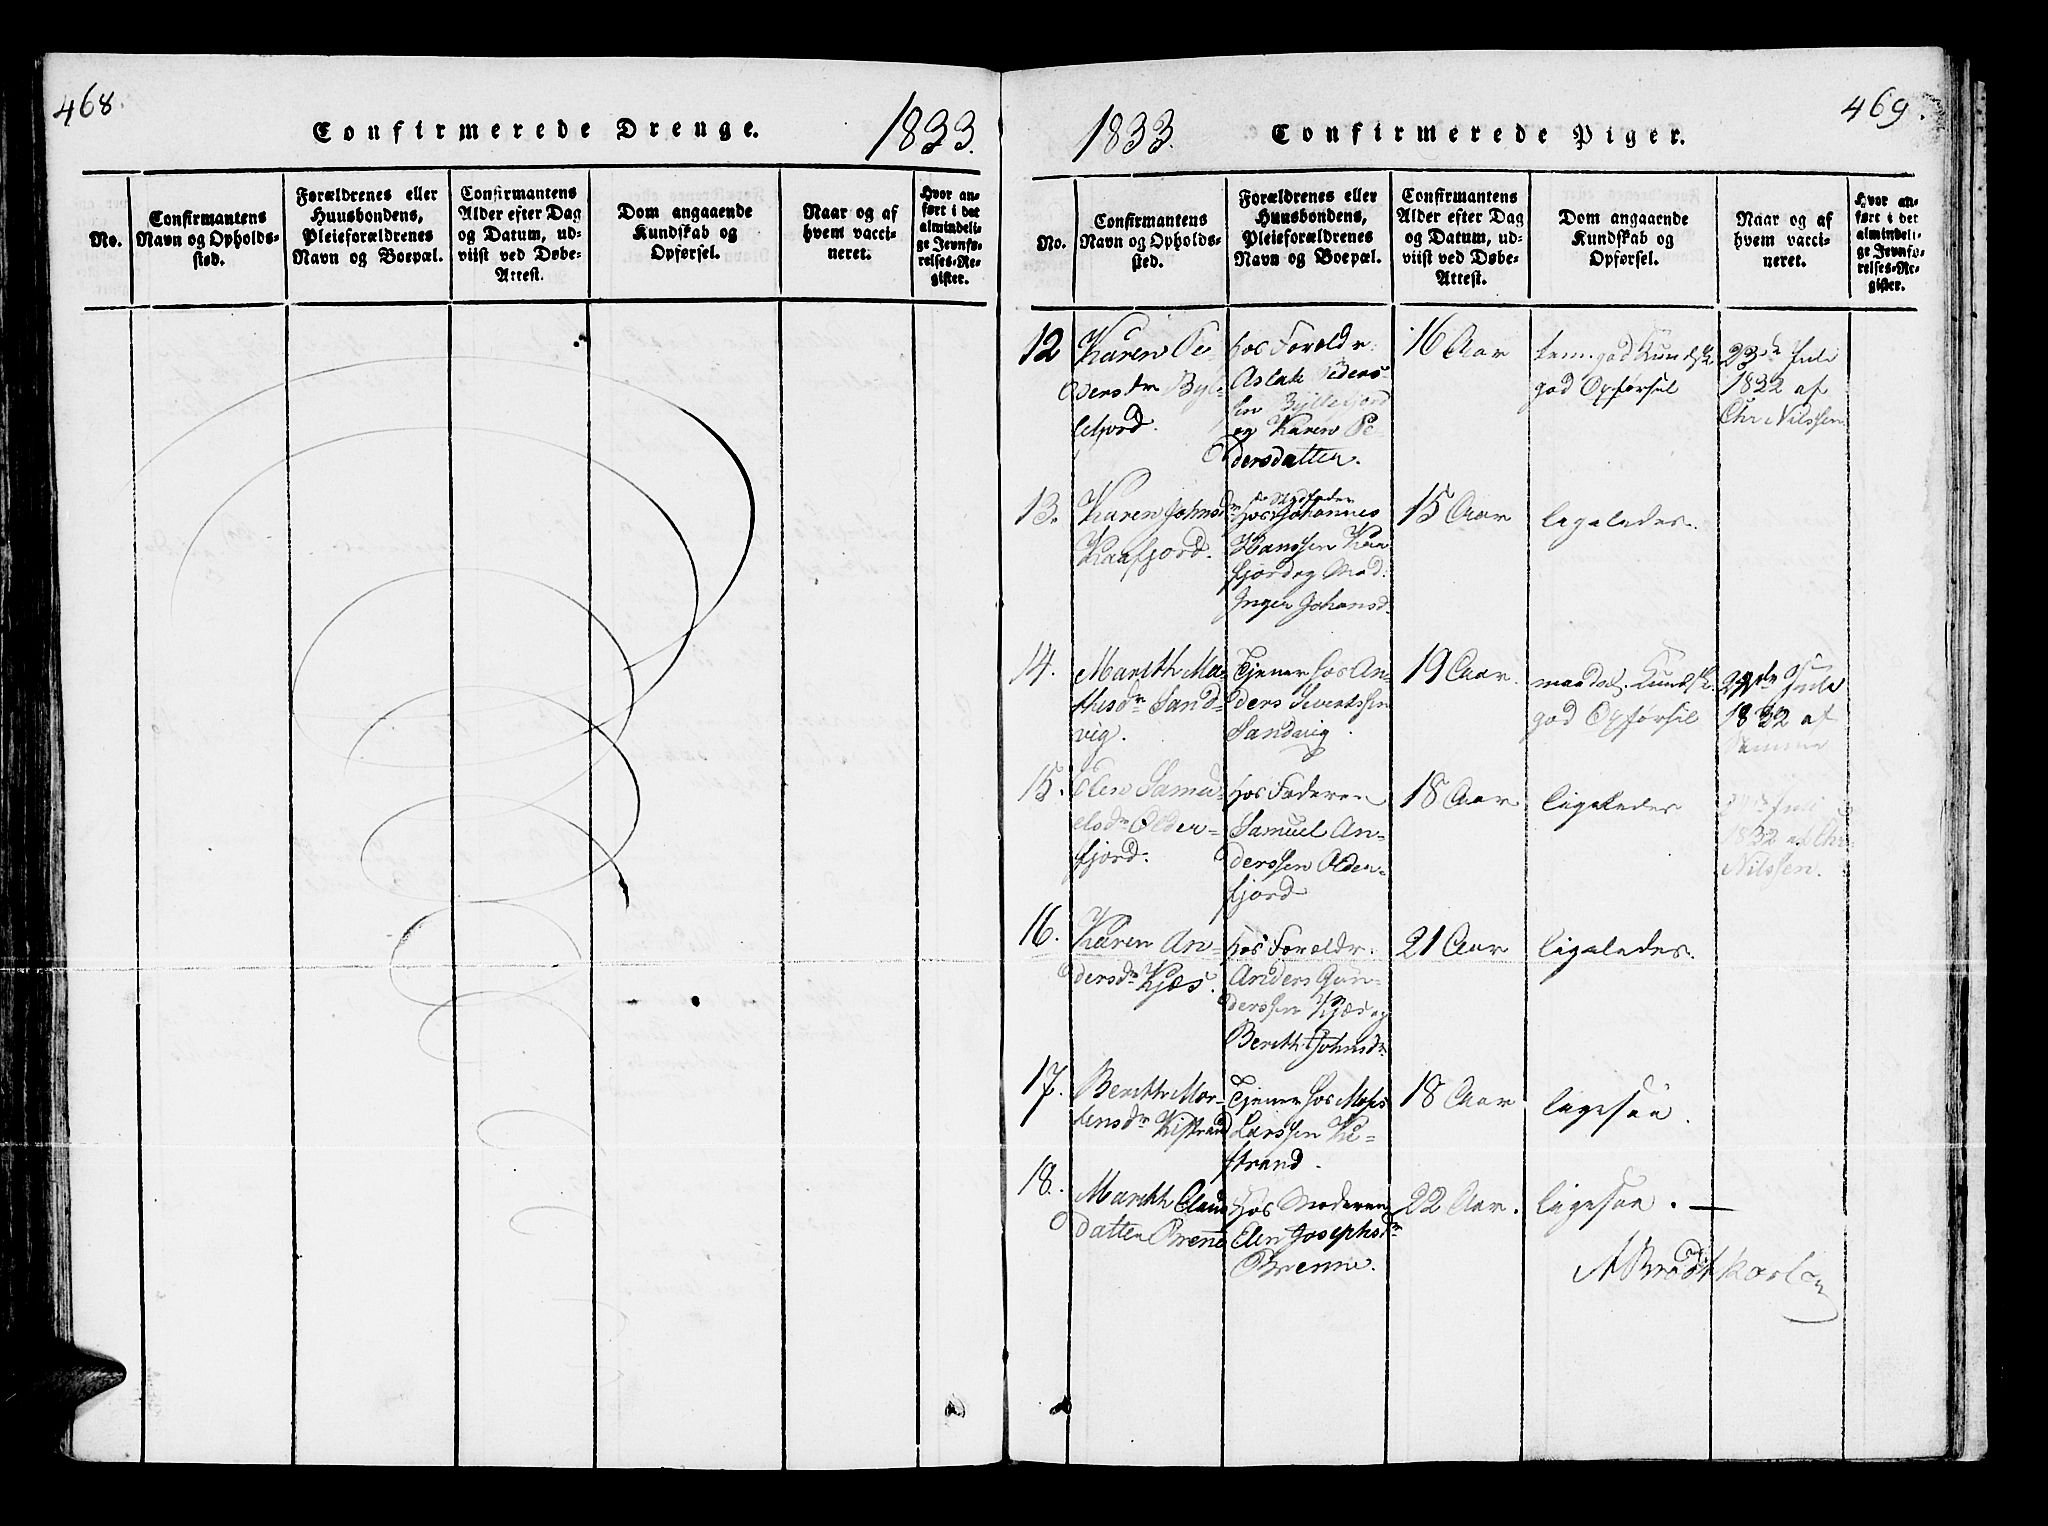 468.
Confirmerede Drenge.
1833.
No.
Confirmantens
Navn og Opholds-
sted.
Forældrenes eller
Huusbondens,
Pleieforældrenes
Navn og Boepæl.
Confirmantens
Alder efter Dag
og Datum, ud-
viist ved Døbe-
Attest.
Dom angaaende
Kundskab og
Opførsel.
Naar og af
hvem vacci-
neret.
Hvor an-
ført i det
almindeli-
ge Jevnfø-
relses-Re-
gister.
469.
1833.
Confirmerede Piger.
No.
Confirmantens
Navn og Opholds-
sted.
Forældrenes eller
Huusbondens,
Pleieforældrenes
Navn og Boepæl.
Confirmantens
Alder efter Dag
og Datum, ud-
viist ved Døbe-
Attest.
Dom angaaende
Kundskab og
Opførsel.
Naar og af
hvem vacci-
neret.
Hvor an-
ført i det
almindeli-
ge Jevnfø-
relses-Re-
gister.
12
Karen Pe-
dersdtr Byl-
lefjord.
hos Forældr.
Aslak Peders-
sen Byllefjord
og Karen Pe-
dersdatter.
16 Aar
tem. god Kundsk.
god Opførsel
23de Juli
1832 af
Chr Nilssen
13.
Karen Johnsdr
Kaafjord.
Stedfader
hos Johannes
Hanssen Kaa
fjord og Mod.
Inger Johansd.
15 Aar
ligeledes.
14.
Marith Ma-
thisdr Sand-
vig.
Tjener hos An-
ders Sivertssen
Sandvig.
19 Aar.
maadel. Kundsk.
god Opførsel
Juli
1832 af
Samme
15.
Elen Samu-
elsdr Older-
fjord.
hos Faderen
Samuel An-
derssen Older-
fjord
18 Aar
ligeledes
Juli
1832 af Chr
Nilssen.
16.
Karen An-
dersdr Kjæs.
hos Forældr.
Anders Gun-
derssen Kjæs og
Berith Johnsdr
21 Aar
ligeledes.
17.
Berith Mor-
tensdr Kistrand
Tjener hos Moses
Larssen Ki-
strand.
18 Aar
ligesaa.
18.
Marith Claus
datter Brenne
hos Moderen
Elen Josephsdr
Brenne.
22 Aar.
ligesaa. —